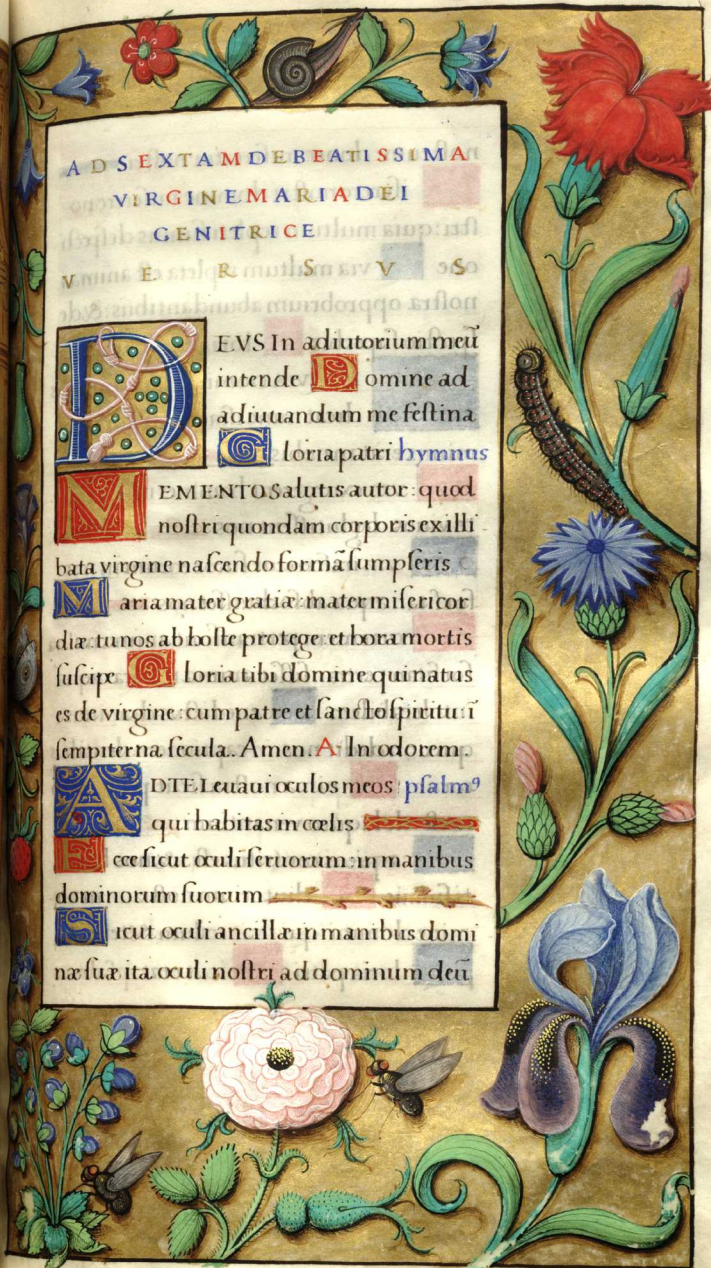 AD SEXTAM DE BEATISSIMA
VIRGINE MARIA DEI
GENITRICE
VERSVS
DEVS In adiutorium meū
intende Domine ad
adiuuandum me feſtina
Gloria patri hymnus
MEMENTO Salutis autor: quod
noſtri quondam corporis ex illi
bata virgine naſcendo formã ſumpſeris
Maria mater gratiæ: mater miſericor
diæ: tu nos ab hoſte protege: et hora mortis
ſuſcipe Gloria tibi domine qui natus
es de virgine: cum patre et ſancto ſpiritu: ī
ſempiterna ſecula.. Amen. A In odorem.
AD TE Leuaui oculos meos: pſalmꝰ
qui habitas in cœlis
Ecce ſicut oculi ſeruorum: in manibus
dominorum ſuorum
Sicut oculi ancillæ in manibus domi
næ ſuæ ita oculi noſtri ad dominum deū